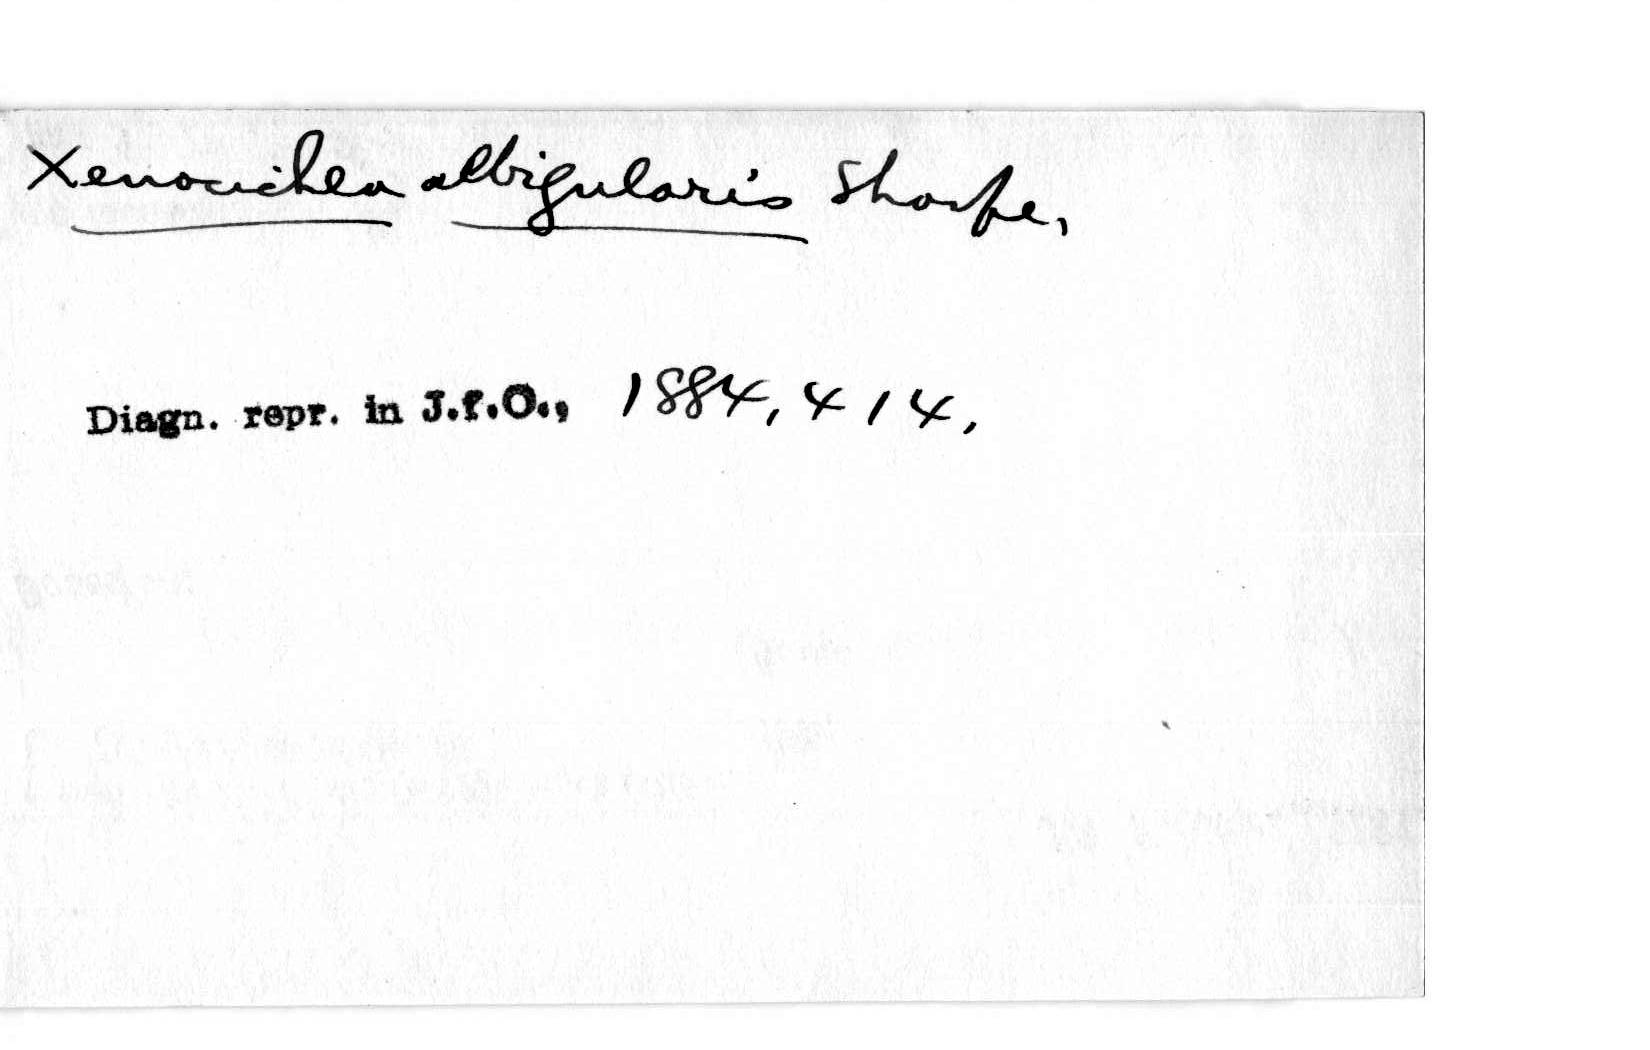 Xenocichla albigularis Sharpe,
Diagn. repr. in J.f.O., 1884, 414,